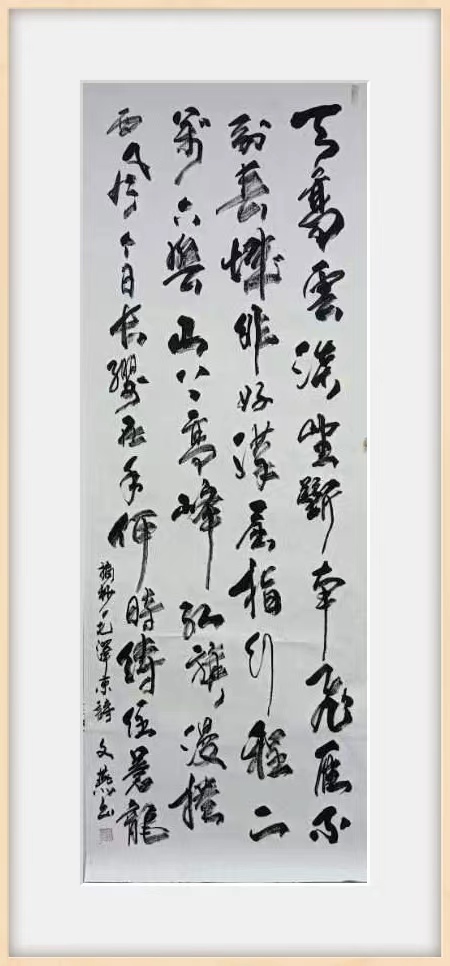 天高雲淡望斷南飛雁不
到長城非好漢屈指行程二
萬六盤山上高峰紅旗漫捲
西風今日长纓在手何時縛住蒼龍
摘抄毛澤東詩 文燕书